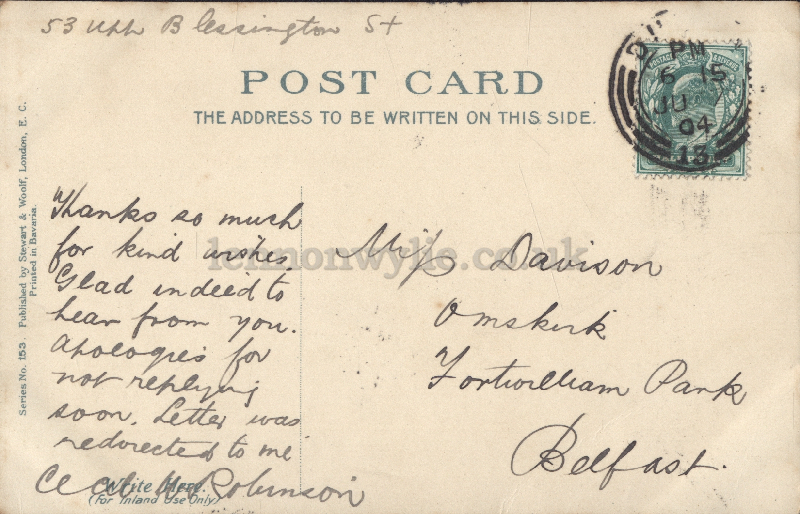 53 Upp Blessington St
POST CARD
THE ADDRESS TO BE WRITTEN ON THIS SIDE.
PM
6 15
JU 7
04
13
Series No. 153. Published by Stewart & Woolf, London, E. C.
Printed in Bavaria.
Thanks so much
for kind wishes.
Glad indeed to
hear from you.
Apologies for
not replying
soon. Letter was
redirected to me
Cecil Robinson
Write Here.
(For Inland Use Only)
Miss Davison
Omskirk
Fortwilliam Park
Belfast.
lennonwylie.co.uk